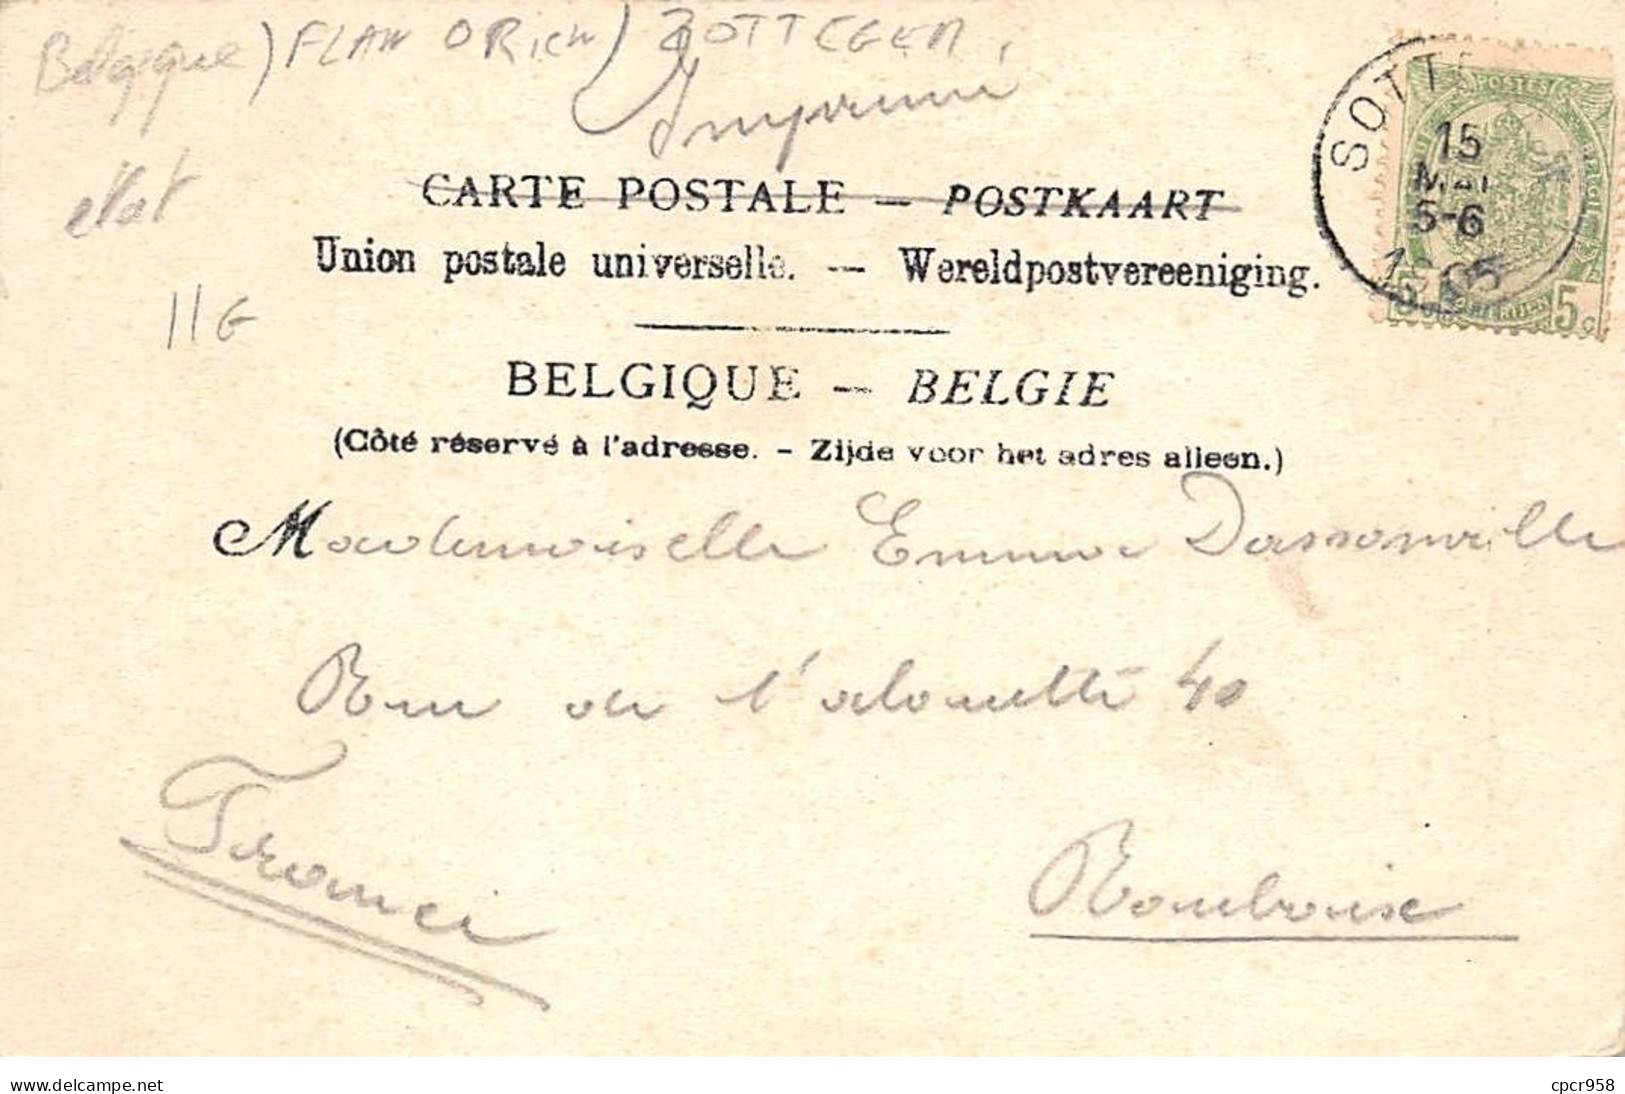 Belgique) FLAN ORien) ZOTTEGEM.
Imprimé
etat
11G
CARTE POSTALE — POSTKAART
Union postale universelle. — Wereldpostvereeniging.
BELGIQUE — BELGIE
(Côté réservé à l'adresse. - Zijde voor het adres alleen.)
SOTT
15
MAI
5-6
1905
POSTES
5 5c
Mademoiselle Emma Dassonville
Rue de l'alouette 40
France
Roubaix
www.delcampe.net
cpcr958